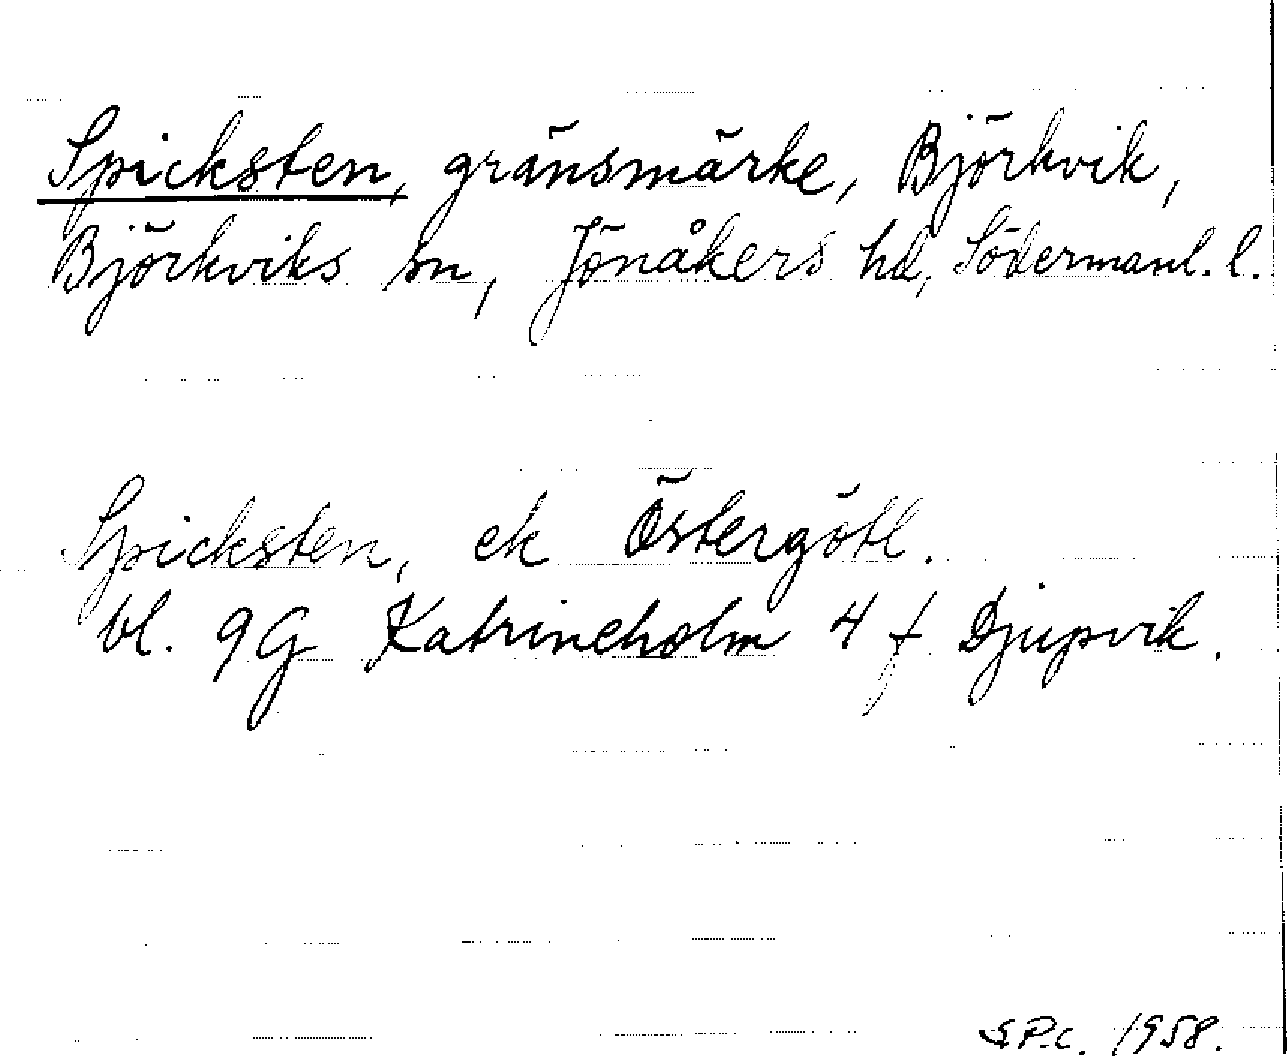 Spicksten, gränsmärke, Björkvik,
Björkviks sn, Jönåkers hd, Södermanl. l.
Spicksten, ek Östergötl.
bl. 9G Katrineholm 4 f Djupvik.
S.P.c. 1958.